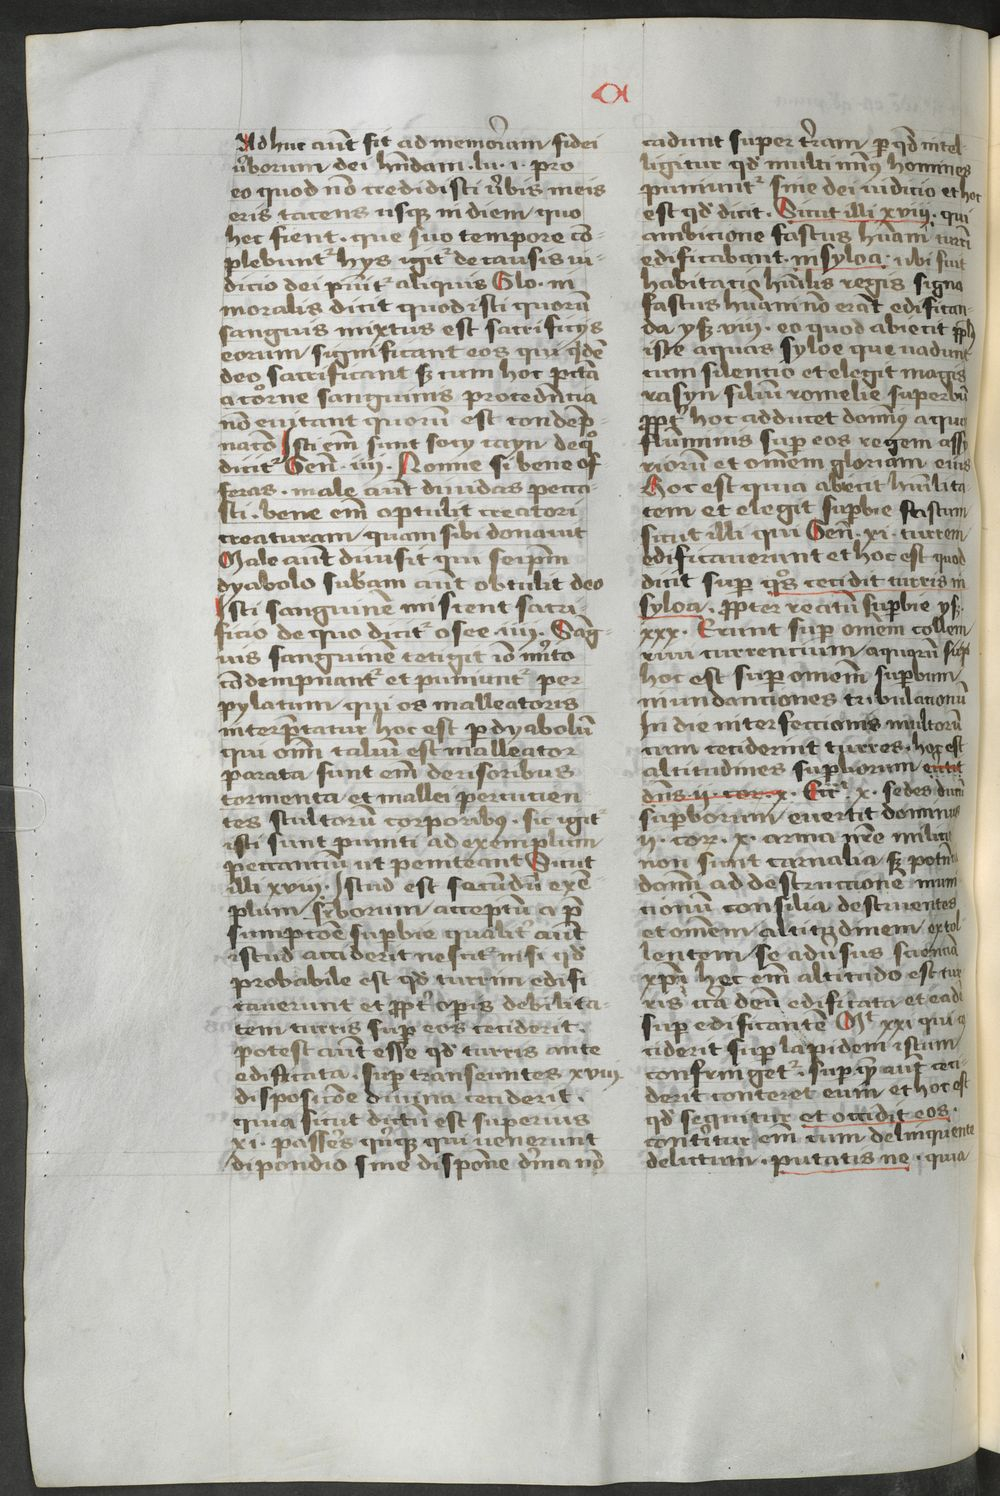 α
Ad huc aūt fit ad memoriam fidei
v̓borum dei hn̄dam · lu · i · pro
eo quod nō credidisti v̓bis meis
eris tacens usqꝫ in diem quo
hec fient · que suo tempore cō-
plebuntᷣ hys igitᷣ de causis iu-
dicio dei pūitᷣ aliquis Glo · in
moralis dicit quod isti quorū
sanguis mixtus est sacrificys
eorum significant eos qui qͥdē
deo sacrificant sꝫ cum hoc pctā
a torͦne sanguinis procedn̄cia
nō euitant quorū est condēp-
nacō Isti em̄ sunt socy cayn de qͦ
dicitᷣ Gen̄ · iiij · Nonne si bene of
feras · male aūt diuidas pecca-
sti · bene em̄ optulit creatori
creaturam quam sibi donauit
Male aūt diuisit qui seip̄m
dyabolo subām aūt obtulit deo
Isti sanguinē miscent sacri-
ficio de quo dicitᷣ osee · iiij · Sāg-
uis sanguinē tetigit iō m̓ito
cōdempnantᷣ et puniuntᷣ per
pylatum qui os malleatoris
interp̄tatur hoc est ꝑ dyabolū
qui om̄i taliū est malleator
parata sunt em̄ derisoribus
tormenta et mallei percucien-
tes stultorū corporibꝫ · sic igitᷣ
isti sunt puniti ad exemplum
peccanciū ut peniteant Sicut
illi xviij · Istud est secundū exē-
plum v̓borum acceptū a p̄
sumpcōe supbie qualit̓ aūt
istud acciderit nescitᷣ nisi qd̓
probabile est qd̓ turrim edifi
cauerunt et ꝓpt̓ opis debilita-
tem turris suꝑ eos ceciderit ·
potest aūt esse qd̓ turris ante
edificata · suꝑ transeuntes xviij
disposicōe diuina ceciderit ·
quia sicut dictū est superius
xi · passēs qͥnqꝫ qui uenerunt
dipondio sine dispōne d̓ina nō
cadunt super t̓ram ꝑ qd̓ intel-
ligitur qd̓ multi minꝰ homines
puniuntᷣ sine dei iudicio et hoc
est qd̓ dicit · Sicut illi xviij · qui
ambicione fastus hūani turrī
edificabant · in syloa · ubi fuit
habitacio hūilis regis signa
fastus hūani nō erāt edifican-
da ysꝫ viij · eo quod abiecit ppls̄
iste aquas syloe que uadunt
cum silencio et elegit magis
rasyn filiū romelie superbū
ꝓpt̓ hoc adducet domin̄ aquas
fluminis suꝑ eos regem assy
riorū et om̄em gloriam eius
Hoc est quia abiecit hūilita-
tem et elegit supbie fastum
sicut illi qui Gen̄ · xi · turrem
edificauerunt et hoc est quod
dicit suꝑ qͦs cecidit turris in
syloa · ꝓpter reatū supbie ysꝫ ·
xxx · Erunt suꝑ om̄em collem
riui currencium aquarū
hoc est suꝑ om̄em supbum
inundanciones tribulacionū
In die interfeccionis multorū
cum ceciderint turres · hoc est
altitudines supborum euertit
dn̄s ij · cor · x · Ecc̓ᷣ x · sedes ducū
supborum euertit dominus
ij · cor · x · arma nr̄e milicie
non sunt carnalia sꝫ
domī ad destruccionē muni
cionū consilia destruentes
et om̄em altitudinem extol
lentem se adu̓sus scienciā
xp̄i hec em̄ altitudo est tur
ris cōa deū edificata et cadēs
suꝑ edificantē Mᵗ xxi qui ce
ciderit suꝑ lapidem istum
confringetᷣ · suꝑ qͫ aūt ceci-
derit conteret eum et hoc est
qd̓ sequitur et occidit eos ·
contītur em̄ cum delinquente
delictum · putatis ne · quia